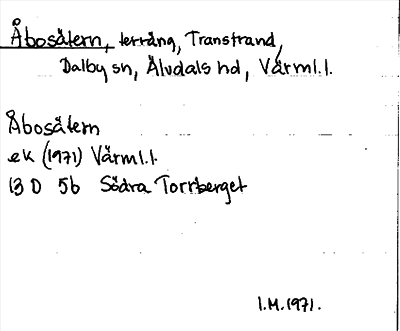 Åbosätern, terräng, Transtrand,
Dalby sn, Älvdals hd, Värml.l.
Åbosätern
ek (1971) Värml.l.
13 D 5b Södra Torrberget
I.M. 1971.